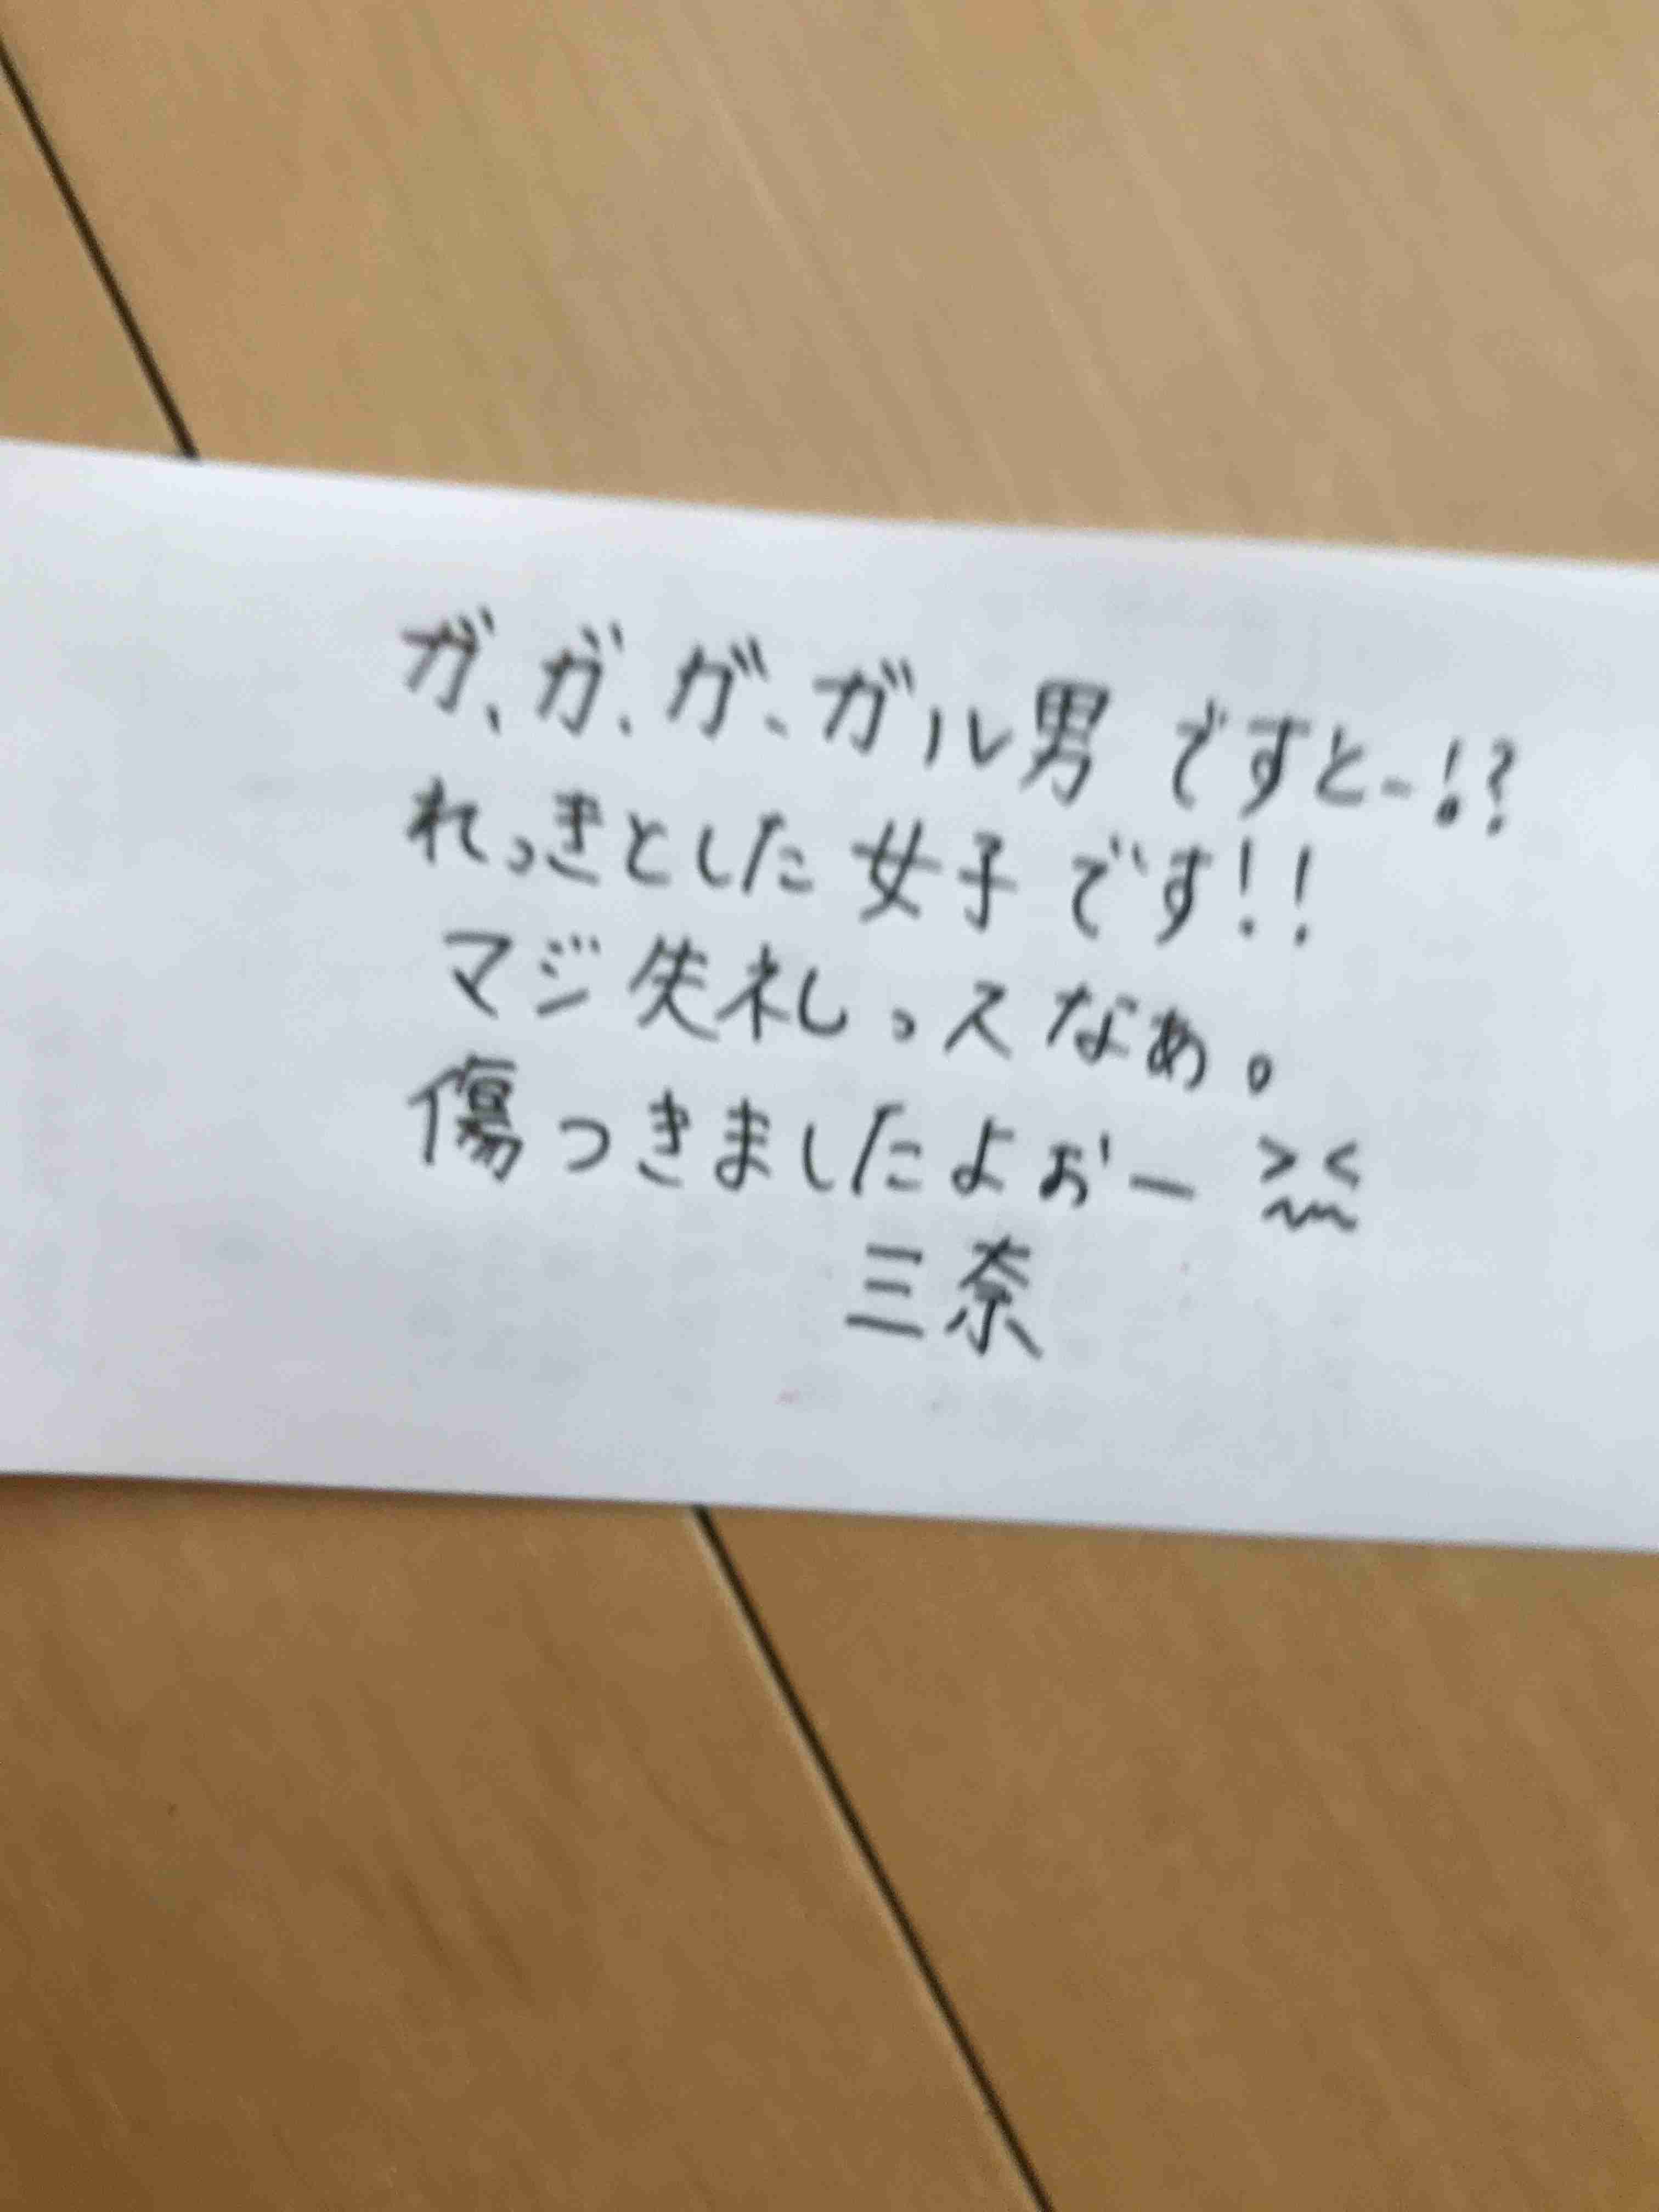 ガ、ガ、ガ、ガル男ですとー!?
れっきとした女子です!!
マジ失礼っスなぁ。
傷つきましたよぉー ><
三奈